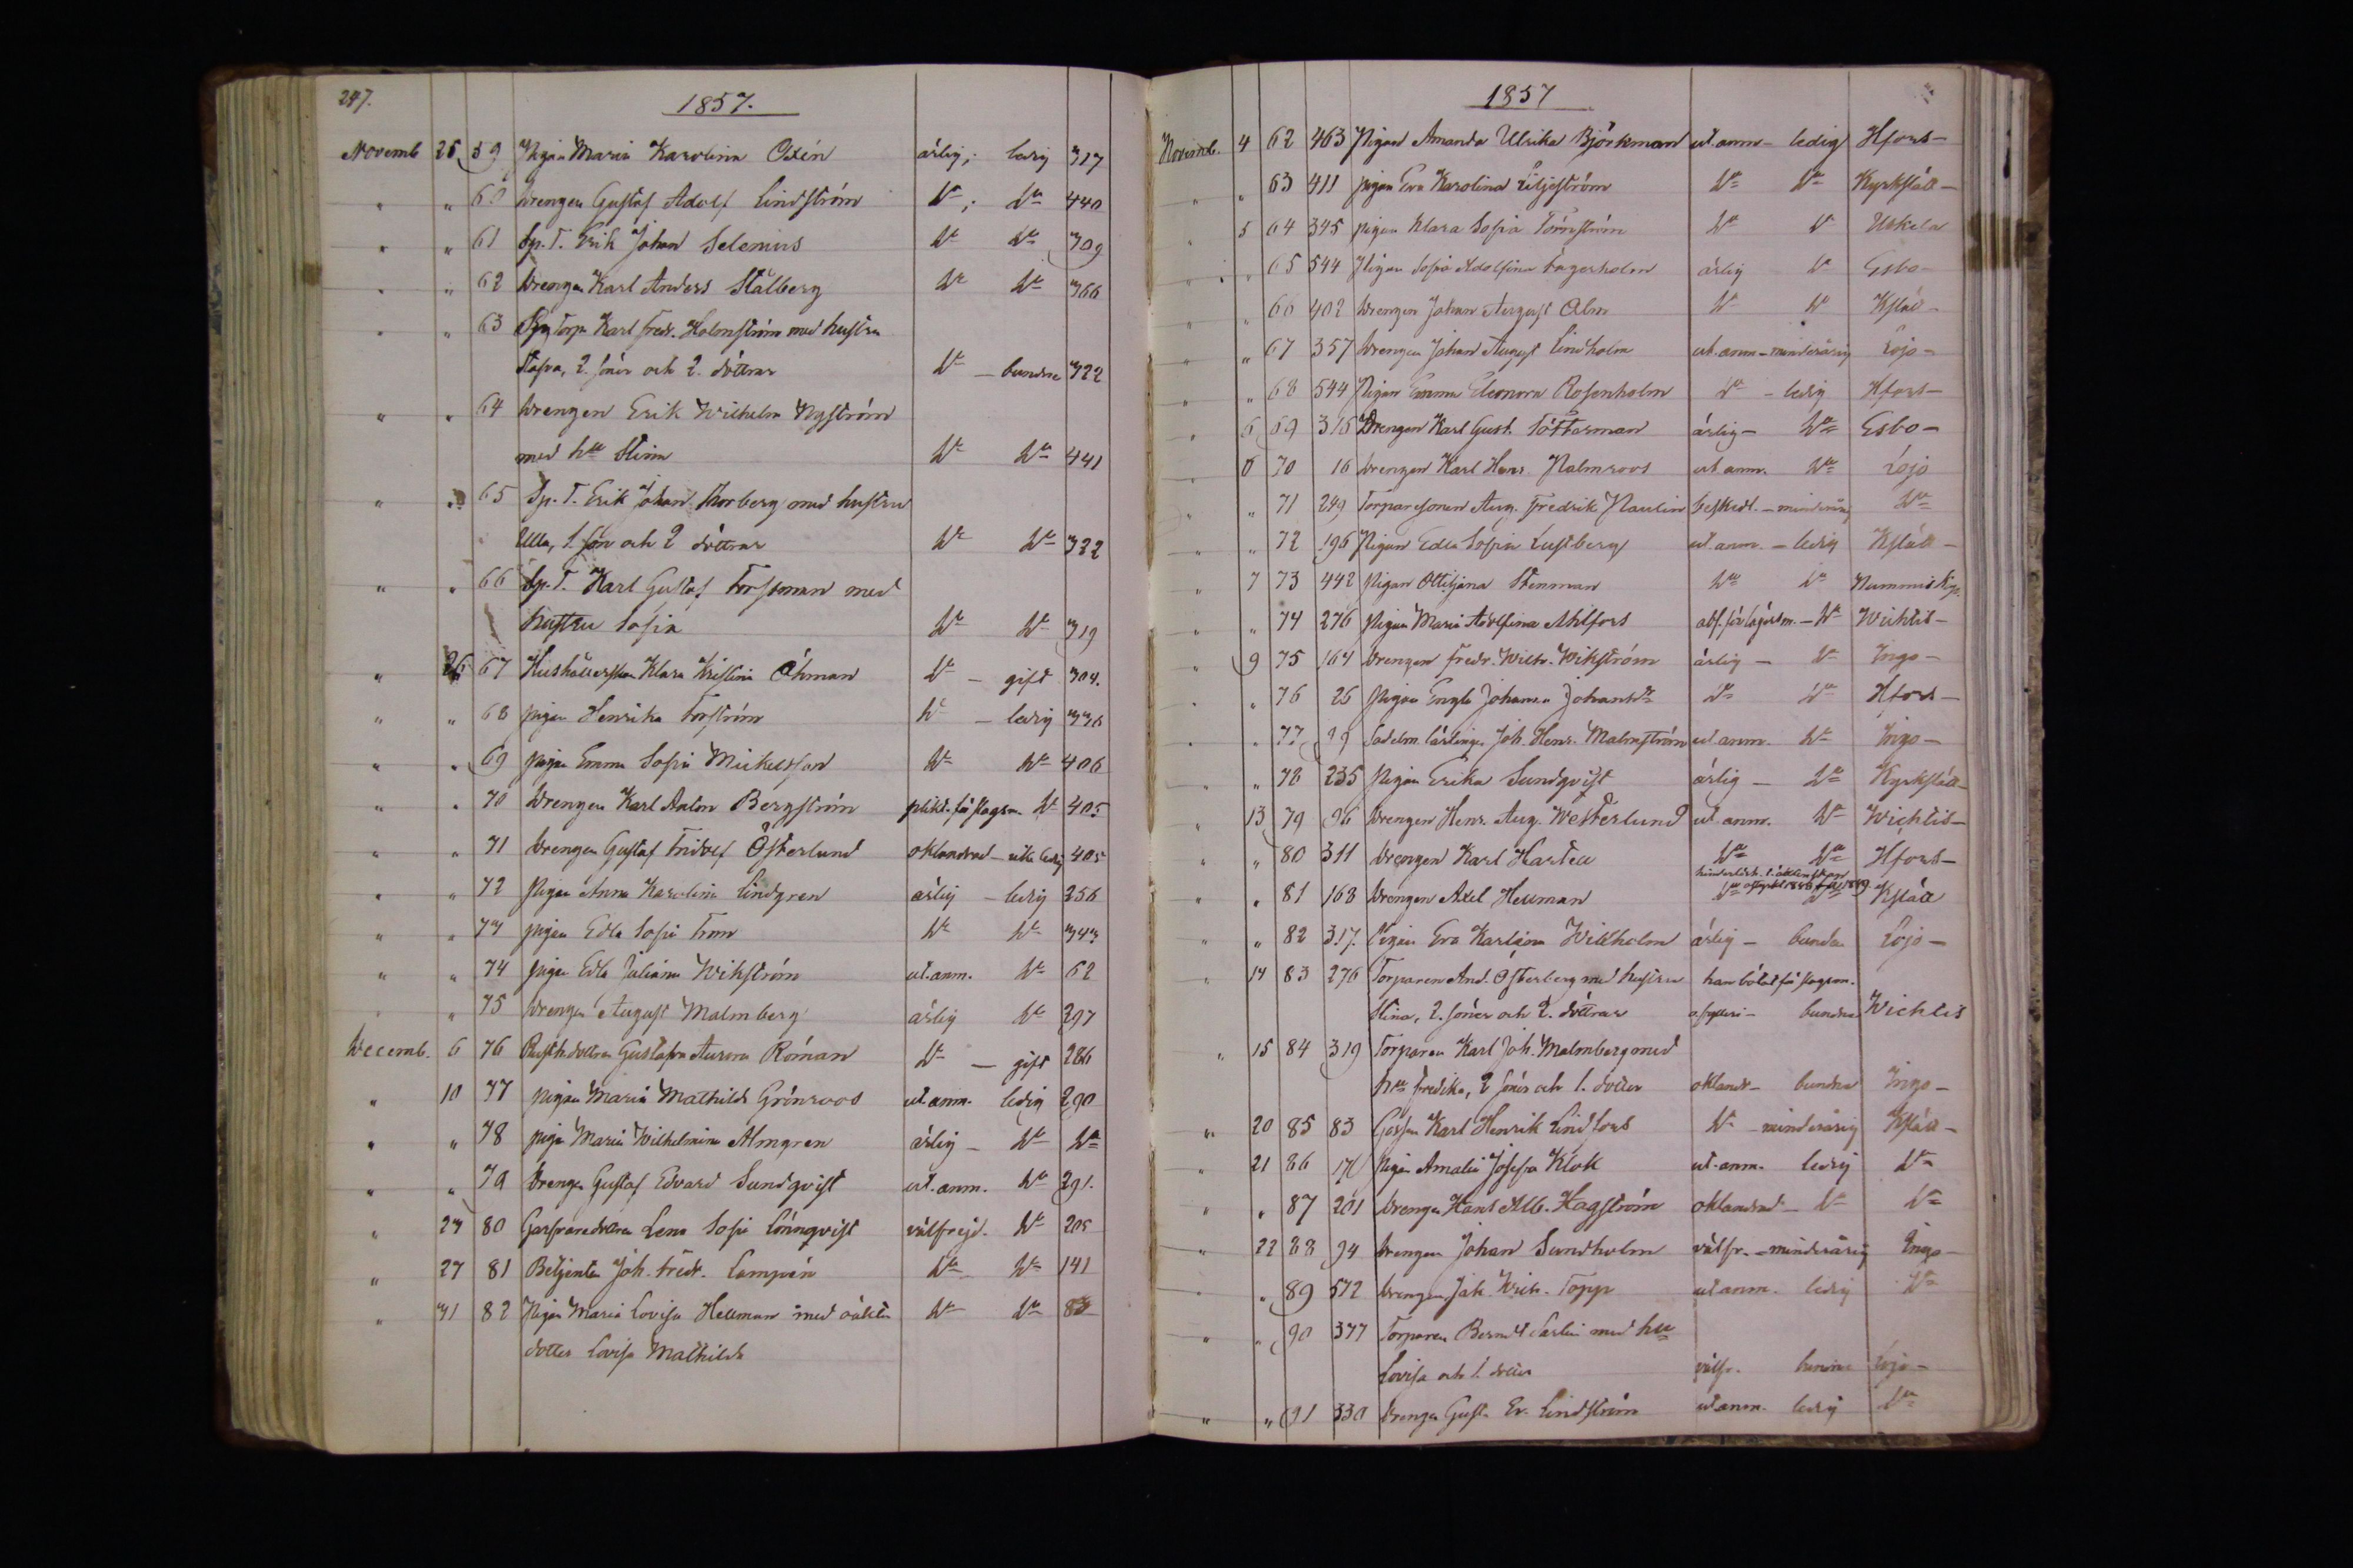 247.
1857.
Novemb 25 59 Pigan Maria Karolina Oxén ärlig, ledig 317
" " 60 Drengen Gustaf Adolf Lindström Do, Do 440
" " 61 Sp. T. Erik Johan Selenius Do Do 309
" " 62 Drengen Karl Anders Stålberg Do Do 366
" " 63 Karl Fredr. Holmström med hustru
Stafva, 2. söner och 2. döttrar Do – bundne 322
" " 64 Drengen Erik Wilhelm Nyström
med hu Stina Do Do 441
" " 65 Sp. T. Erik Johan Thorberg med hustru
Ulla, 1. son och 2 döttrar Do Do 322
" " 66 Sp. T. Karl Gustaf Forssman med
hustru Sofia Do Do 319
" 26 67 Hushållerskan Klara Kristina Öhman Do – gift 304.
" " 68 pigan Henrika Forström Do – ledig 336
" " 69 pigan Emma Sofia Mickelsson Do Do 406
" " 70 Drengen Karl Anton Bergström plikt. för slagsm. Do 405
" " 71 Drengen Gustaf Fridolf Österlund oklandrad – icke ledig 405
" " 72 Pigan Anna Karolina Lindgren ärlig – ledig 256
" " 73 pigan Edla Sofia From Do Do 343
" " 74 pigan Edla Juliana Wikström ut. anm. Do 62
" " 75 Drengen August Malmberg ärlig Do 297
Decemb. 6 76 Rusth.dottren Gustafva Aurora Röman Do – gift 286
" 10 77 pigan Maria Mathilda Grönroos ut. anm. ledig 290
" " 78 piga Maria Wilhelmina Almgren ärlig – Do Do
" " 79 Drengen Gustaf Edvard Sundqvist ut. anm. Do 291.
" 23 80 Lena Sofia Lönnqvist välfrejd. Do 205
" 27 81 Betjenten Joh. Fredr. Lampén Do Do 141
" 31 82 Pigan Maria Lovisa Hellman med oäkta Do Do 83
dotter Lovisa Mathilda
1857
Novemb. 4 62 463 Pigan Amanda Ulrika Björkman ut. anm – ledig Hfors –
" " 63 411 pigan Eva Karolina Liljeström Do Do Kyrkslätt –
" 5 64 345 pigan Klara Sofia Törnström Do Do Uskela
" " 65 544 Pigan Sofia Adolfina Fagerholm ärlig Do Esbo –
" " 66 402 Drengen Johan August Alm Do Do Kslätt –
" " 67 357 Drengen Johan August Lindholm ut. anm – minderårig Lojo –
" " 68 544 Pigan Emma Eleonora Rosenholm Do – ledig Hfors –
" 6 69 316 Drengen Karl Gust. Totterman ärlig – Do Esbo –
" 6 70 16 Drengen Karl Henr. Malmroos ut anm. Do Lojo
" " 71 249 Torparesonen Aug. Fredrik Naulin beskedl. – minderårig Do
" " 72 196 Pigan Edla Sofia Lustberg ut. anm. – ledig Kslätt –
" 7 73 442 Pigan Ottiljana Stenman Do Do Nummis
" " 74 276 Pigan Maria Adolfina Ahlfors abs. för lägersm. – Do Wichtis –
" 9 75 164 Drengen Fredr. Wilh. Wikström ärlig – Do Ingo –
" " 76 26 Pigan Engla Johanna Johansdr Do Do Hfors –
" " 77 99 Sadelm. lärlingen Joh. Henr. Malmström ut anm. Do Ingo –
" " 78 235 Pigan Erika Sundqvist ärlig – Do Kyrkslätt –
" 13 79 96 Drengen Henr. Aug. Westerlund ut anm. Do Wichtis –
" " 80 311 Drengen Karl Hartell Do Do Hfors –
" " 81 168 Drengen Axel Hellman Do Do Kslätt
" " 82 317. Pigan Eva Karljana Willholm ärlig – bunden Lojo –
" 14 83 276 Torparen And. Österberg med hustru han bötat för slagsm.
Stina, 2. söner och 2. döttrar o. fylleri – bundna Wichtis
" 15 84 319 Torparen Karl Joh. Malmberg med
hu Fredika, 2 söner och 1. dotter oklandr – bundna Ingo –
" 20 85 83 Gossen Karl Henrik Lindfors Do – minderårig Kslätt –
" 21 86 171 Pigan Amalia Josefa Klok ut. anm. ledig Do
" " 87 201 Drengen Hans Alb. Hagström oklandrad – Do Do
" 22 88 94 Drengen Johan Sundholm välfr. – minderårig Ingo –
" " 89 572 Drengen Joh. Wilh. Topp ut anm. ledig Do
" " 90 377 Torparen Berndt Sarlin med hu
Lovisa och 1. dotter välfr. bundna Lojo –
" " 91 330 Drengen Gust. Er. Lindström ut anm. ledig Do